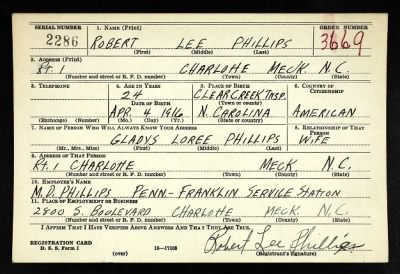 SERIAL NUMBER 1. NAME (Print) ORDER NUMBER
2286 ROBERT LEE PHILLIPS 3669
(First) (Middle) (Last)
2. ADDRESS (Print)
Rt. 1 CHARLOTTE MECK. N.C.
(Number and street or R. F. D. number) (Town) (County) (State)
3. TELEPHONE 4. AGE IN YEARS 5. PLACE OF BIRTH 6. COUNTRY OF CITIZENSHIP
24 CLEAR CREEK TWSP.
DATE OF BIRTH (Town or county)
APR. 4 1916 N. CAROLINA AMERICAN
(Exchange) (Number) (Mo.) (Day) (Yr.) (State or country)
7. NAME OF PERSON WHO WILL ALWAYS KNOW YOUR ADDRESS 8. RELATIONSHIP OF THAT PERSON
GLADYS LOREE PHILLIPS WIFE
(Mr., Mrs., Miss) (First) (Middle) (Last)
9. ADDRESS OF THAT PERSON
Rt. 1 CHARLOTTE MECK N.C.
(Number and street or R. F. D. number) (Town) (County) (State)
10. EMPLOYER'S NAME
M.D. PHILLIPS PENN-FRANKLIN SERVICE STATION
11. PLACE OF EMPLOYMENT OR BUSINESS
2800 S. BOULEVARD CHARLOTTE MECK. N.C.
(Number and street or R. F. D. number) (Town) (County) (State)
I AFFIRM THAT I HAVE VERIFIED ABOVE ANSWERS AND THAT THEY ARE TRUE.
Robert Lee Phillips
REGISTRATION CARD
D. S. S. Form 1 (over) 16-17105 (Registrant's signature)